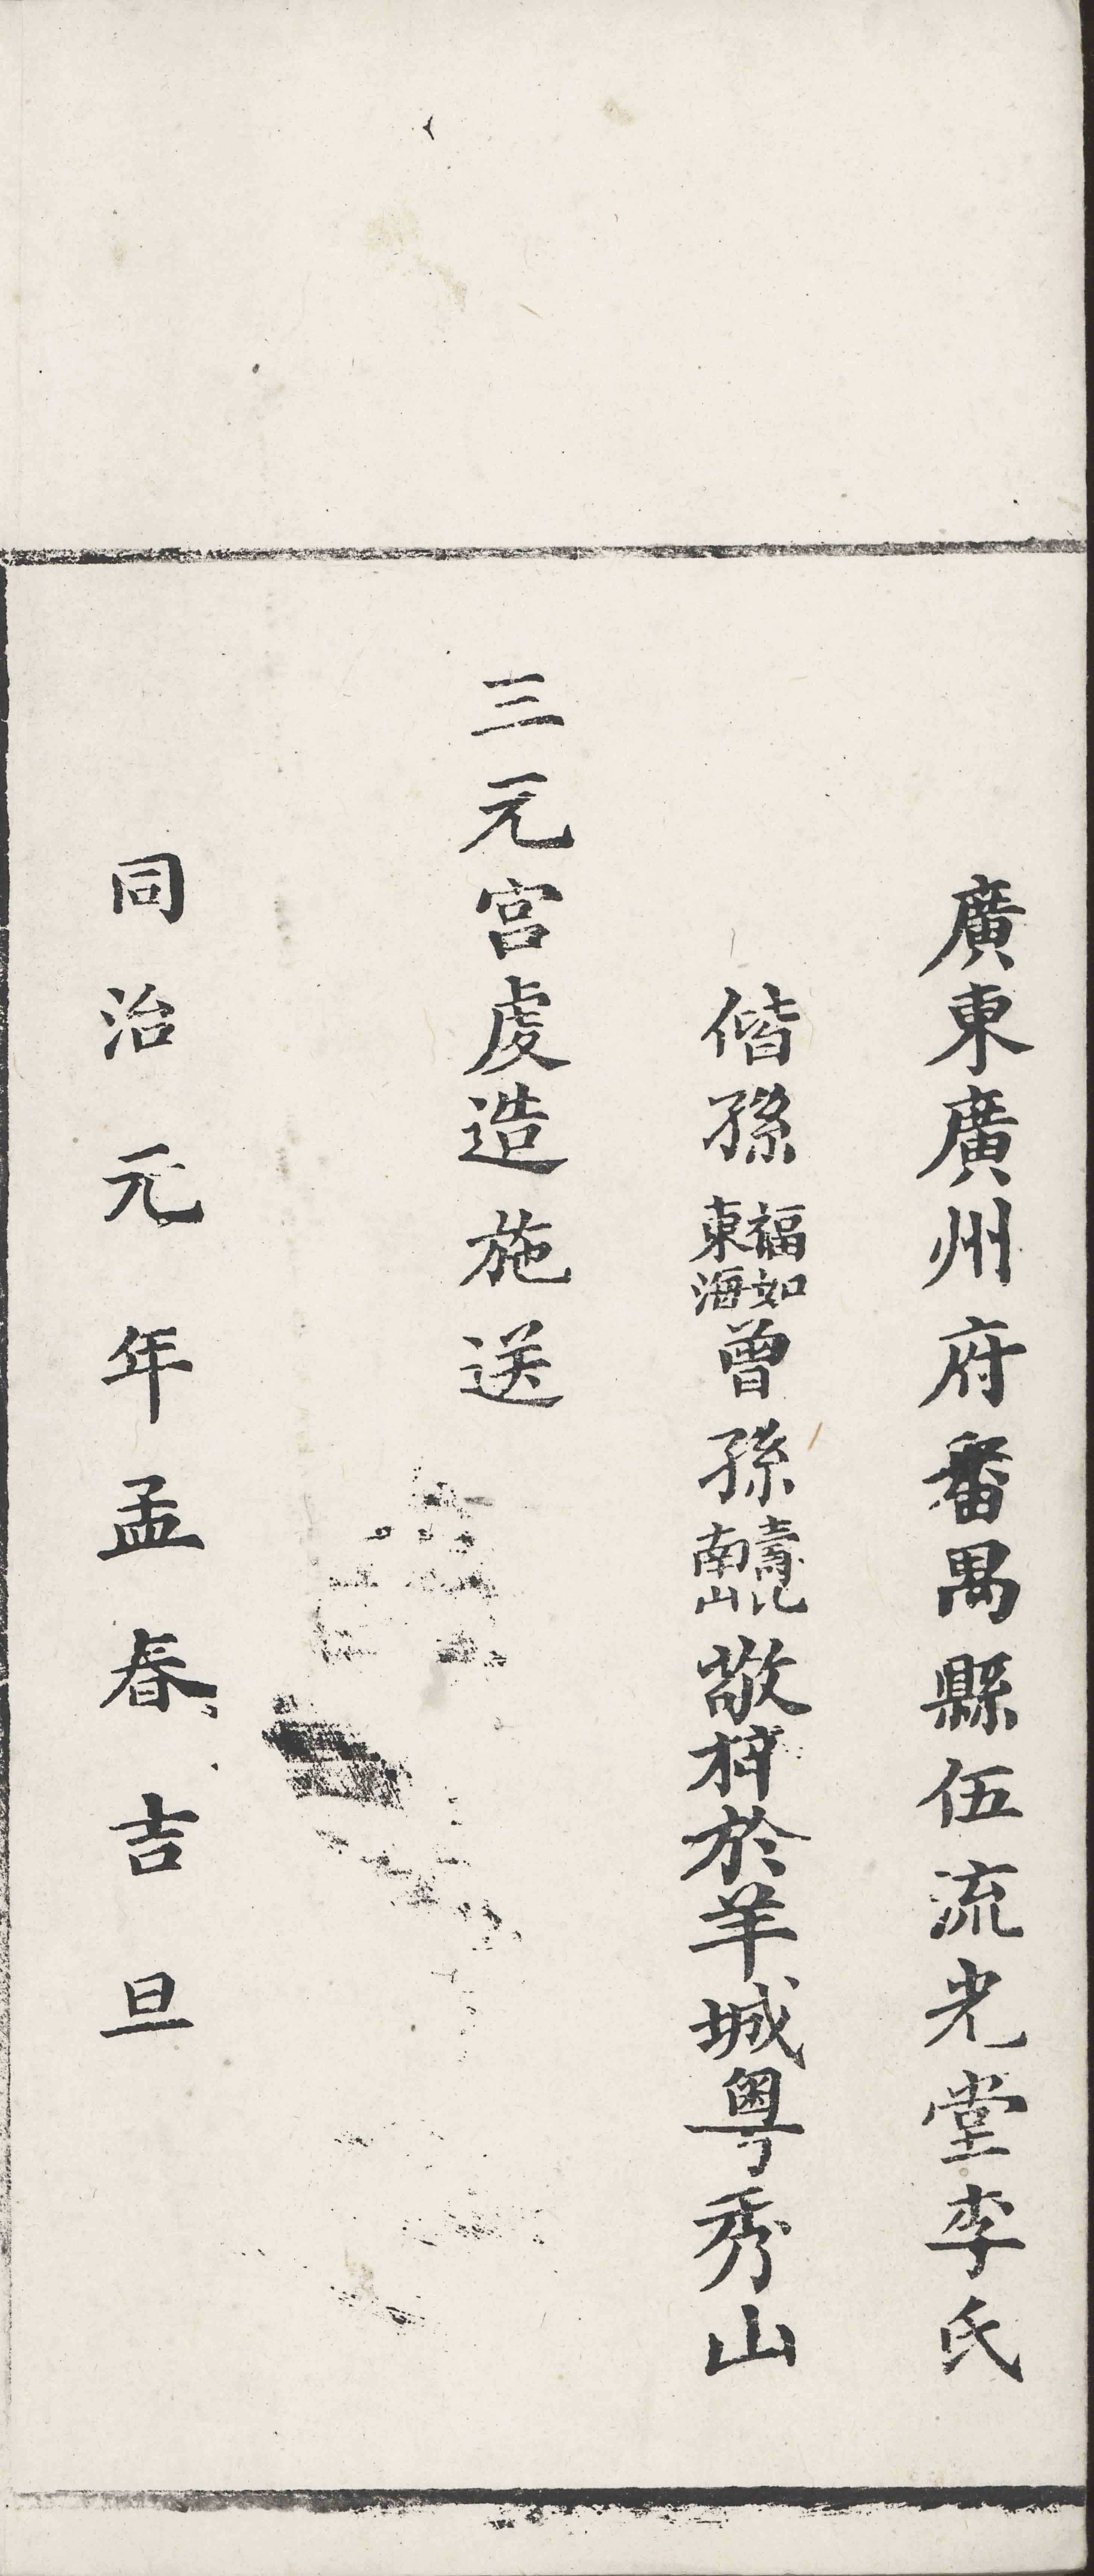 廣東廣州府番禺縣伍流光堂李氏
偕孫福如東海曾孫壽比南山敬梓於羊城粵秀山
三元宮處造施送
同治元年孟春吉旦